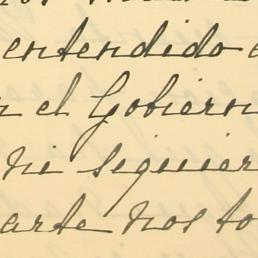 entendido
n el Gobiern
ni siquier
arte nos to